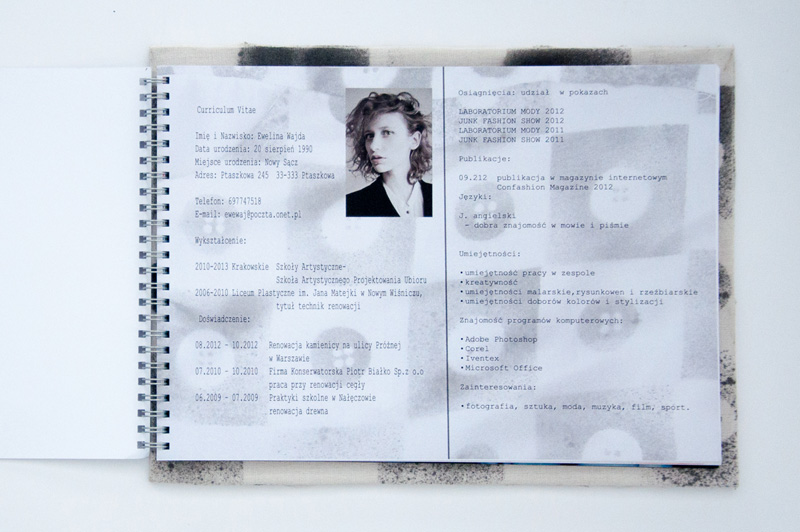 Curriculum Vitae
Imię i Nazwisko: Ewelina Wajda
Data urodzenia: 20 sierpień 1990
Miejsce urodzenia: Nowy Sącz
Adres: Ptaszkowa 245 33-333 Ptaszkowa
Telefon: 697747518
E-mail: ewewaj@poczta.onet.pl
Wykształcenie:
2010-2013 Krakowskie Szkoły Artystyczne-
Szkoła Artystycznego Projektowania Ubioru
2006-2010 Liceum Plastyczne im. Jana Matejki w Nowym Wiśniczu,
tytuł technik renowacji
Doświadczenie:
08.2012 - 10.2012 Renowacja kamienicy na ulicy Próżnej
w Warszawie
07.2010 - 10.2010 Firma Konserwatorska Piotr Białko Sp.z o.o
praca przy renowacji cegły
06.2009 - 07.2009 Praktyki szkolne w Nałęczowie
renowacja drewna
Osiągnięcia: udział w pokazach
LABORATORIUM MODY 2012
JUNK FASHION SHOW 2012
LABORATORIUM MODY 2011
JUNK FASHION SHOW 2011
Publikacje:
09.212 publikacja w magazynie internetowym
Confashion Magazine 2012
Języki:
J. angielski
- dobra znajomość w mowie i piśmie
Umiejętności:
•umiejętność pracy w zespole
•kreatywność
•umiejętności malarskie,rysunkowen i rzeźbiarskie
•umiejętności doborów kolorów i stylizacji
Znajomość programów komputerowych:
•Adobe Photoshop
•Corel
•Iventex
•Microsoft Office
Zainteresowania:
•fotografia, sztuka, moda, muzyka, film, sport.